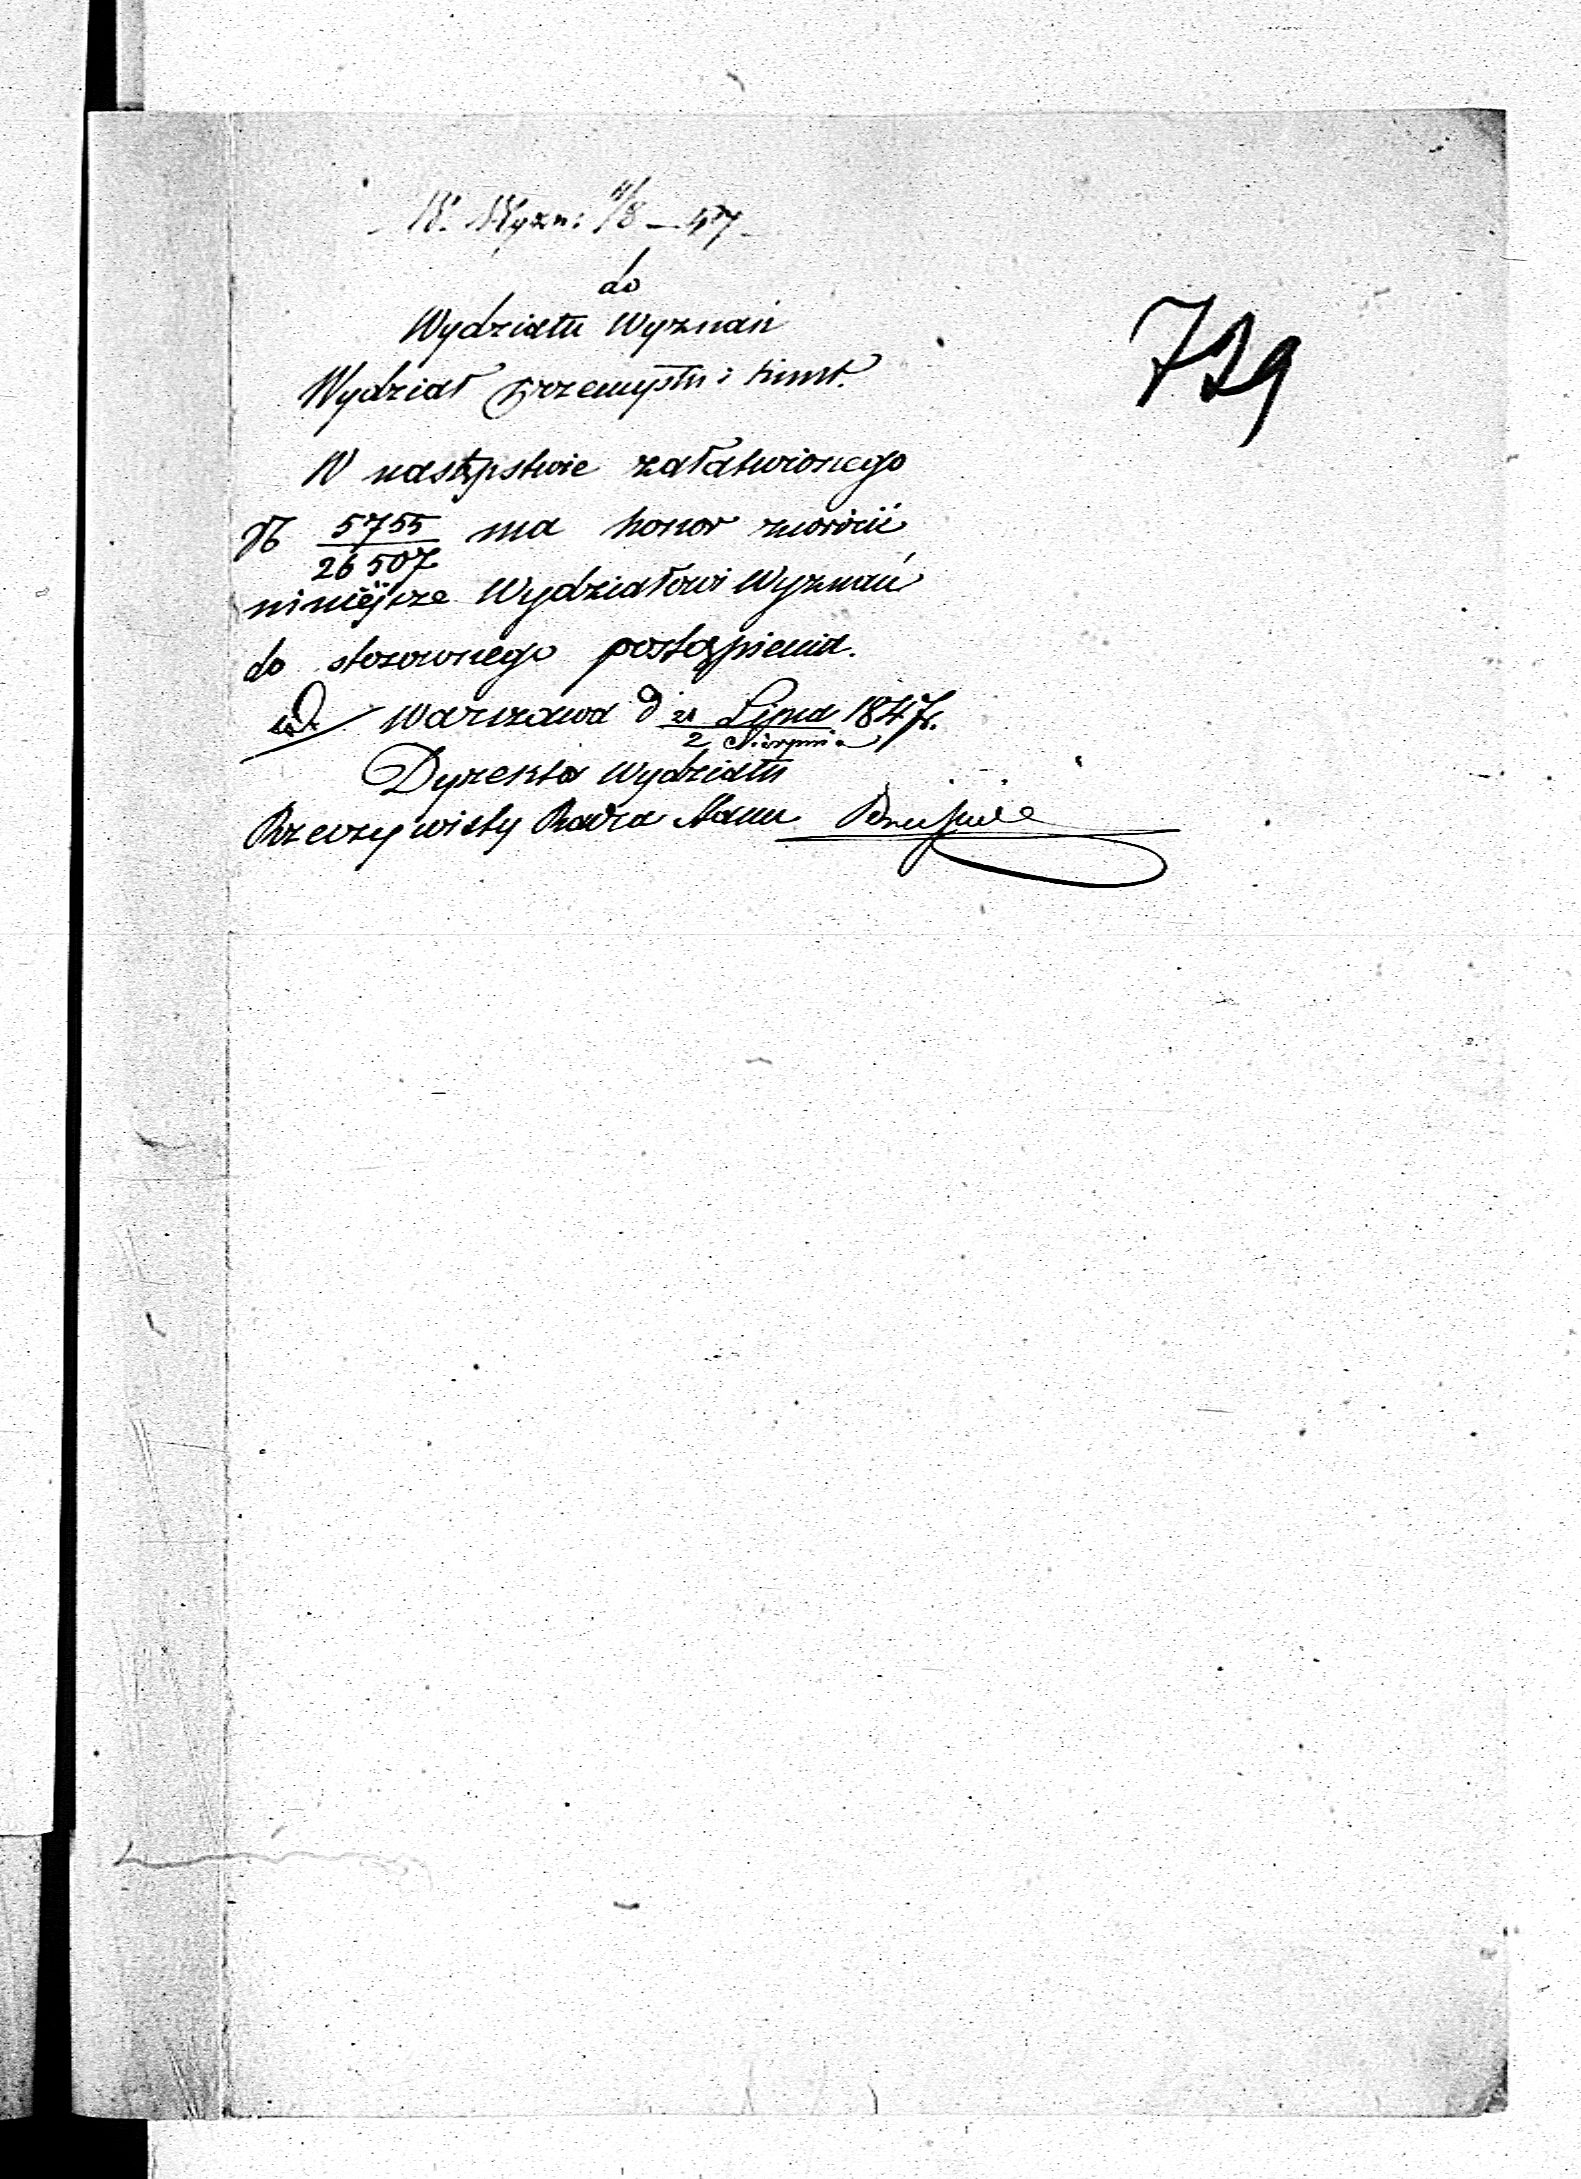 W. Wyzn: 11/8 – 47
do
Wydziału Wyznań
729
Wydział Przemysłu i Kunst.
W następstwie załatwionego
№ 5755/26507 ma honor zwrócić
niniejsze Wydziałowi Wyznań
do stosownego postąpienia.
Warszawa d 21 Lipca/2 Sierpnia 1847 r.
Dyrektor Wydziału
Rzeczywisty Radca Stanu